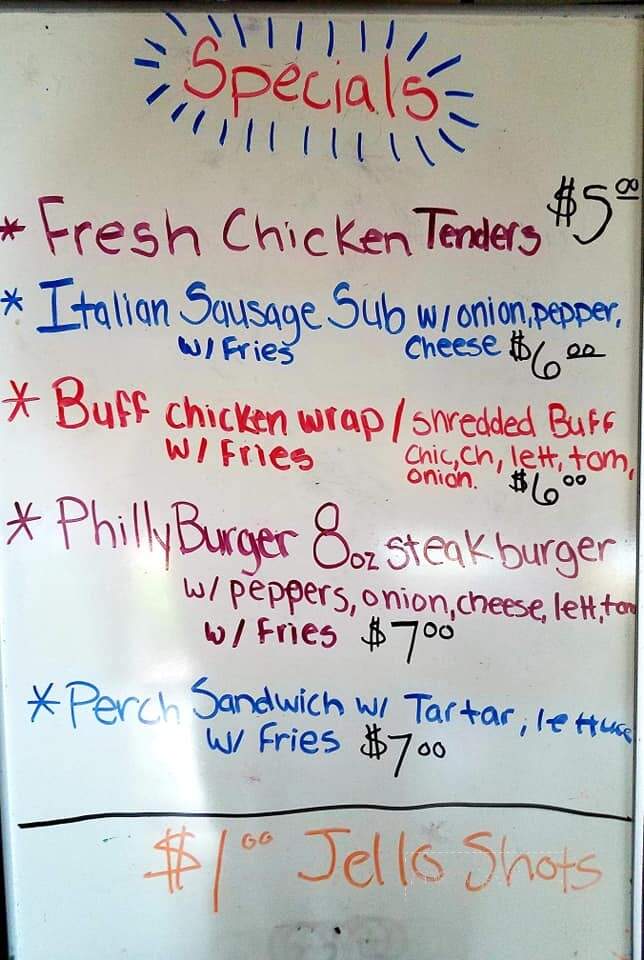 Specials
* Fresh Chicken Tenders $5.00
* Italian Sausage Sub w/ onion, pepper,
w/ Fries cheese $6.00
* Buff chicken wrap / shredded Buff
w/ Fries chic, ch, lett, tom,
onion. $6.00
* Philly Burger 8oz steak burger
w/ peppers, onion, cheese, lett, tom
w/ Fries $7.00
* Perch Sandwich w/ Tartar, lettuce
w/ Fries $7.00
$1.00 Jello Shots